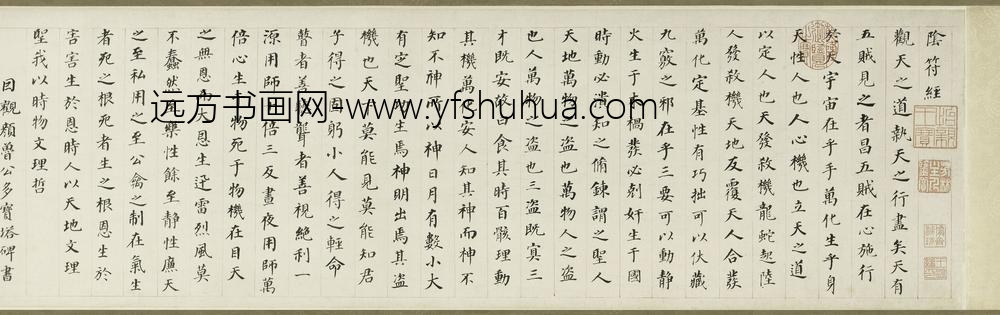 陰符經
觀天之道執天之行盡矣天有
五賊見之者昌五賊在心施行
於天宇宙在乎手萬化生乎身
天性人也人心機也立天之道
以定人也天發殺機龍蛇起陸
人發殺機天地反覆天人合發
萬化定基性有巧拙可以伏藏
九竅之邪在乎三要可以動靜
火生于木禍發必剋奸生于國
時動必潰知之脩鍊謂之聖人
天地萬物之盜也萬物人之盜
也人萬物之盜也三盜既冥三
才既安故曰食其時百骸理動
其機萬化安人知其神而神不
知不神所以神日月有數小大
有定聖功生焉神明出焉其盜
機也天下莫能見莫能知君
子得之固躬小人得之輕命
瞽者善聽聾者善視絕利一
源用師十倍三反晝夜用師萬
倍心生于物死于物機在目天
之無恩而大恩生迅雷烈風莫
不蠢然至樂性餘至靜性廉天
之至私用之至公禽之制在氣生
者死之根死者生之根恩生於
害害生於恩時人以天地文理
聖我以時物文理哲
因觀顏魯公多寶塔碑書
远方书画网-www.yfshuhua.com